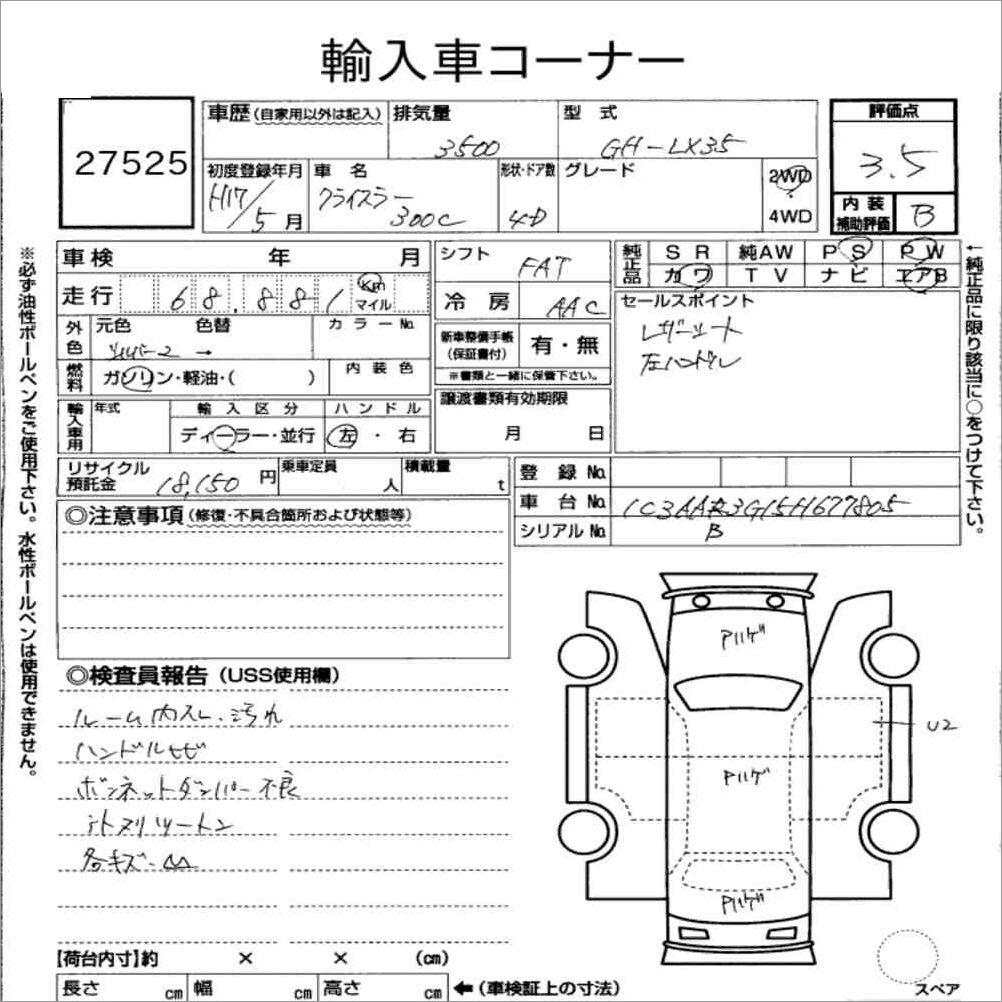 輸入車コーナー
27525
車歴(自家用以外は記入) 排気量 3500 型式 GH-LX35 評価点 3.5
初度登録年月 H17/5月 車名 クライスラー 300C 形状・ドア数 4D グレード 2WD 4WD 内装補助評価 B
車検 年 月 シフト FAT 純正品 SR 純AW PS PW
カワ TV ナビ エアB
走行 68,881 Km マイル 冷房 AAC セールスポイント
レザーシート
左ハンドル
外色 元色 シルバー2 色替 → カラーNo. 新車整備手帳(保証書付) 有・無
※書類と一緒に保管下さい。
燃料 ガソリン・軽油・( ) 内装色
譲渡書類有効期限
月 日
輸入車用 年式 輸入区分 ハンドル
ディーラー・並行 左・右
リサイクル預託金 18,150円 乗車定員 人 積載量 t 登録No.
車台No. 1C3AAR3G15H677805
シリアルNo. B
◎注意事項(修復・不具合箇所および状態等)
◎検査員報告(USS使用欄)
ルーム内スレ・汚れ
ハンドルヒビ
ボンネットダンパー不良
外ヌリツートン
各キズ
Pハゲ
U2
Pハゲ
Pハゲ
スペア
【荷台内寸】約 × × (cm)
長さ cm 幅 cm 高さ cm ←(車検証上の寸法)
※必ず油性ボールペンをご使用下さい。水性ボールペンは使用できません。
←純正品に限り該当に○をつけて下さい。